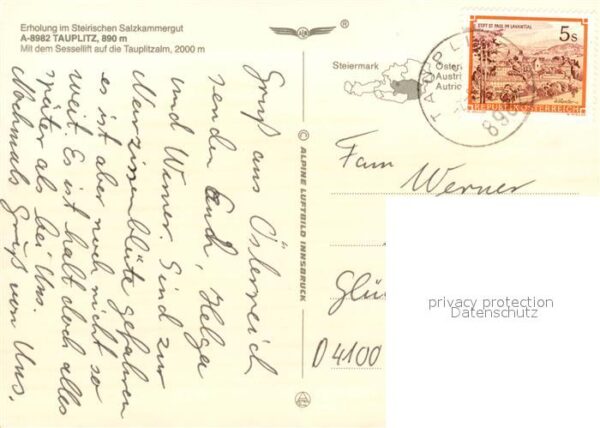 Erholung im Steirischen Salzkammergut
A-8982 TAUPLITZ, 890 m
Mit dem Sessellift auf die Tauplitzalm, 2000 m
Gruß aus Österreich
senden Euch, Helga
und Werner. Sind zur
Narzissenblüte gefahren
es ist aber noch nicht so
weit. Es ist halt doch alles
später als bei Uns.
Nochmals Gruß von Uns.
®
© ALPINE LUFTBILD INNSBRUCK
Steiermark
Öster
Austri
Autric
TAUPLI
STIFT ST. PAUL IM LAVANTTAL
5 S
REPUBLIK ÖSTERREICH
Fam
Werner
Glü
D 4100
privacy protection
Datenschutz